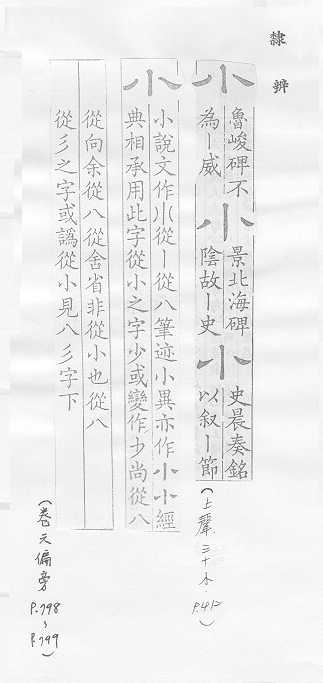 隸辨
小 魯峻碑不為丨威 小 景北海碑陰故丨史 小 史晨奏銘以敘丨節
(上聲三十小.P.412)
小 小說文作小從丨從八筆迹小異亦作小小經
典相承用此字從小之字少或變作少尚從八
從向余從八從舍省非從小也從八
從彡之字或譌從小見八彡字下
(卷六偏旁P.798~P.799)